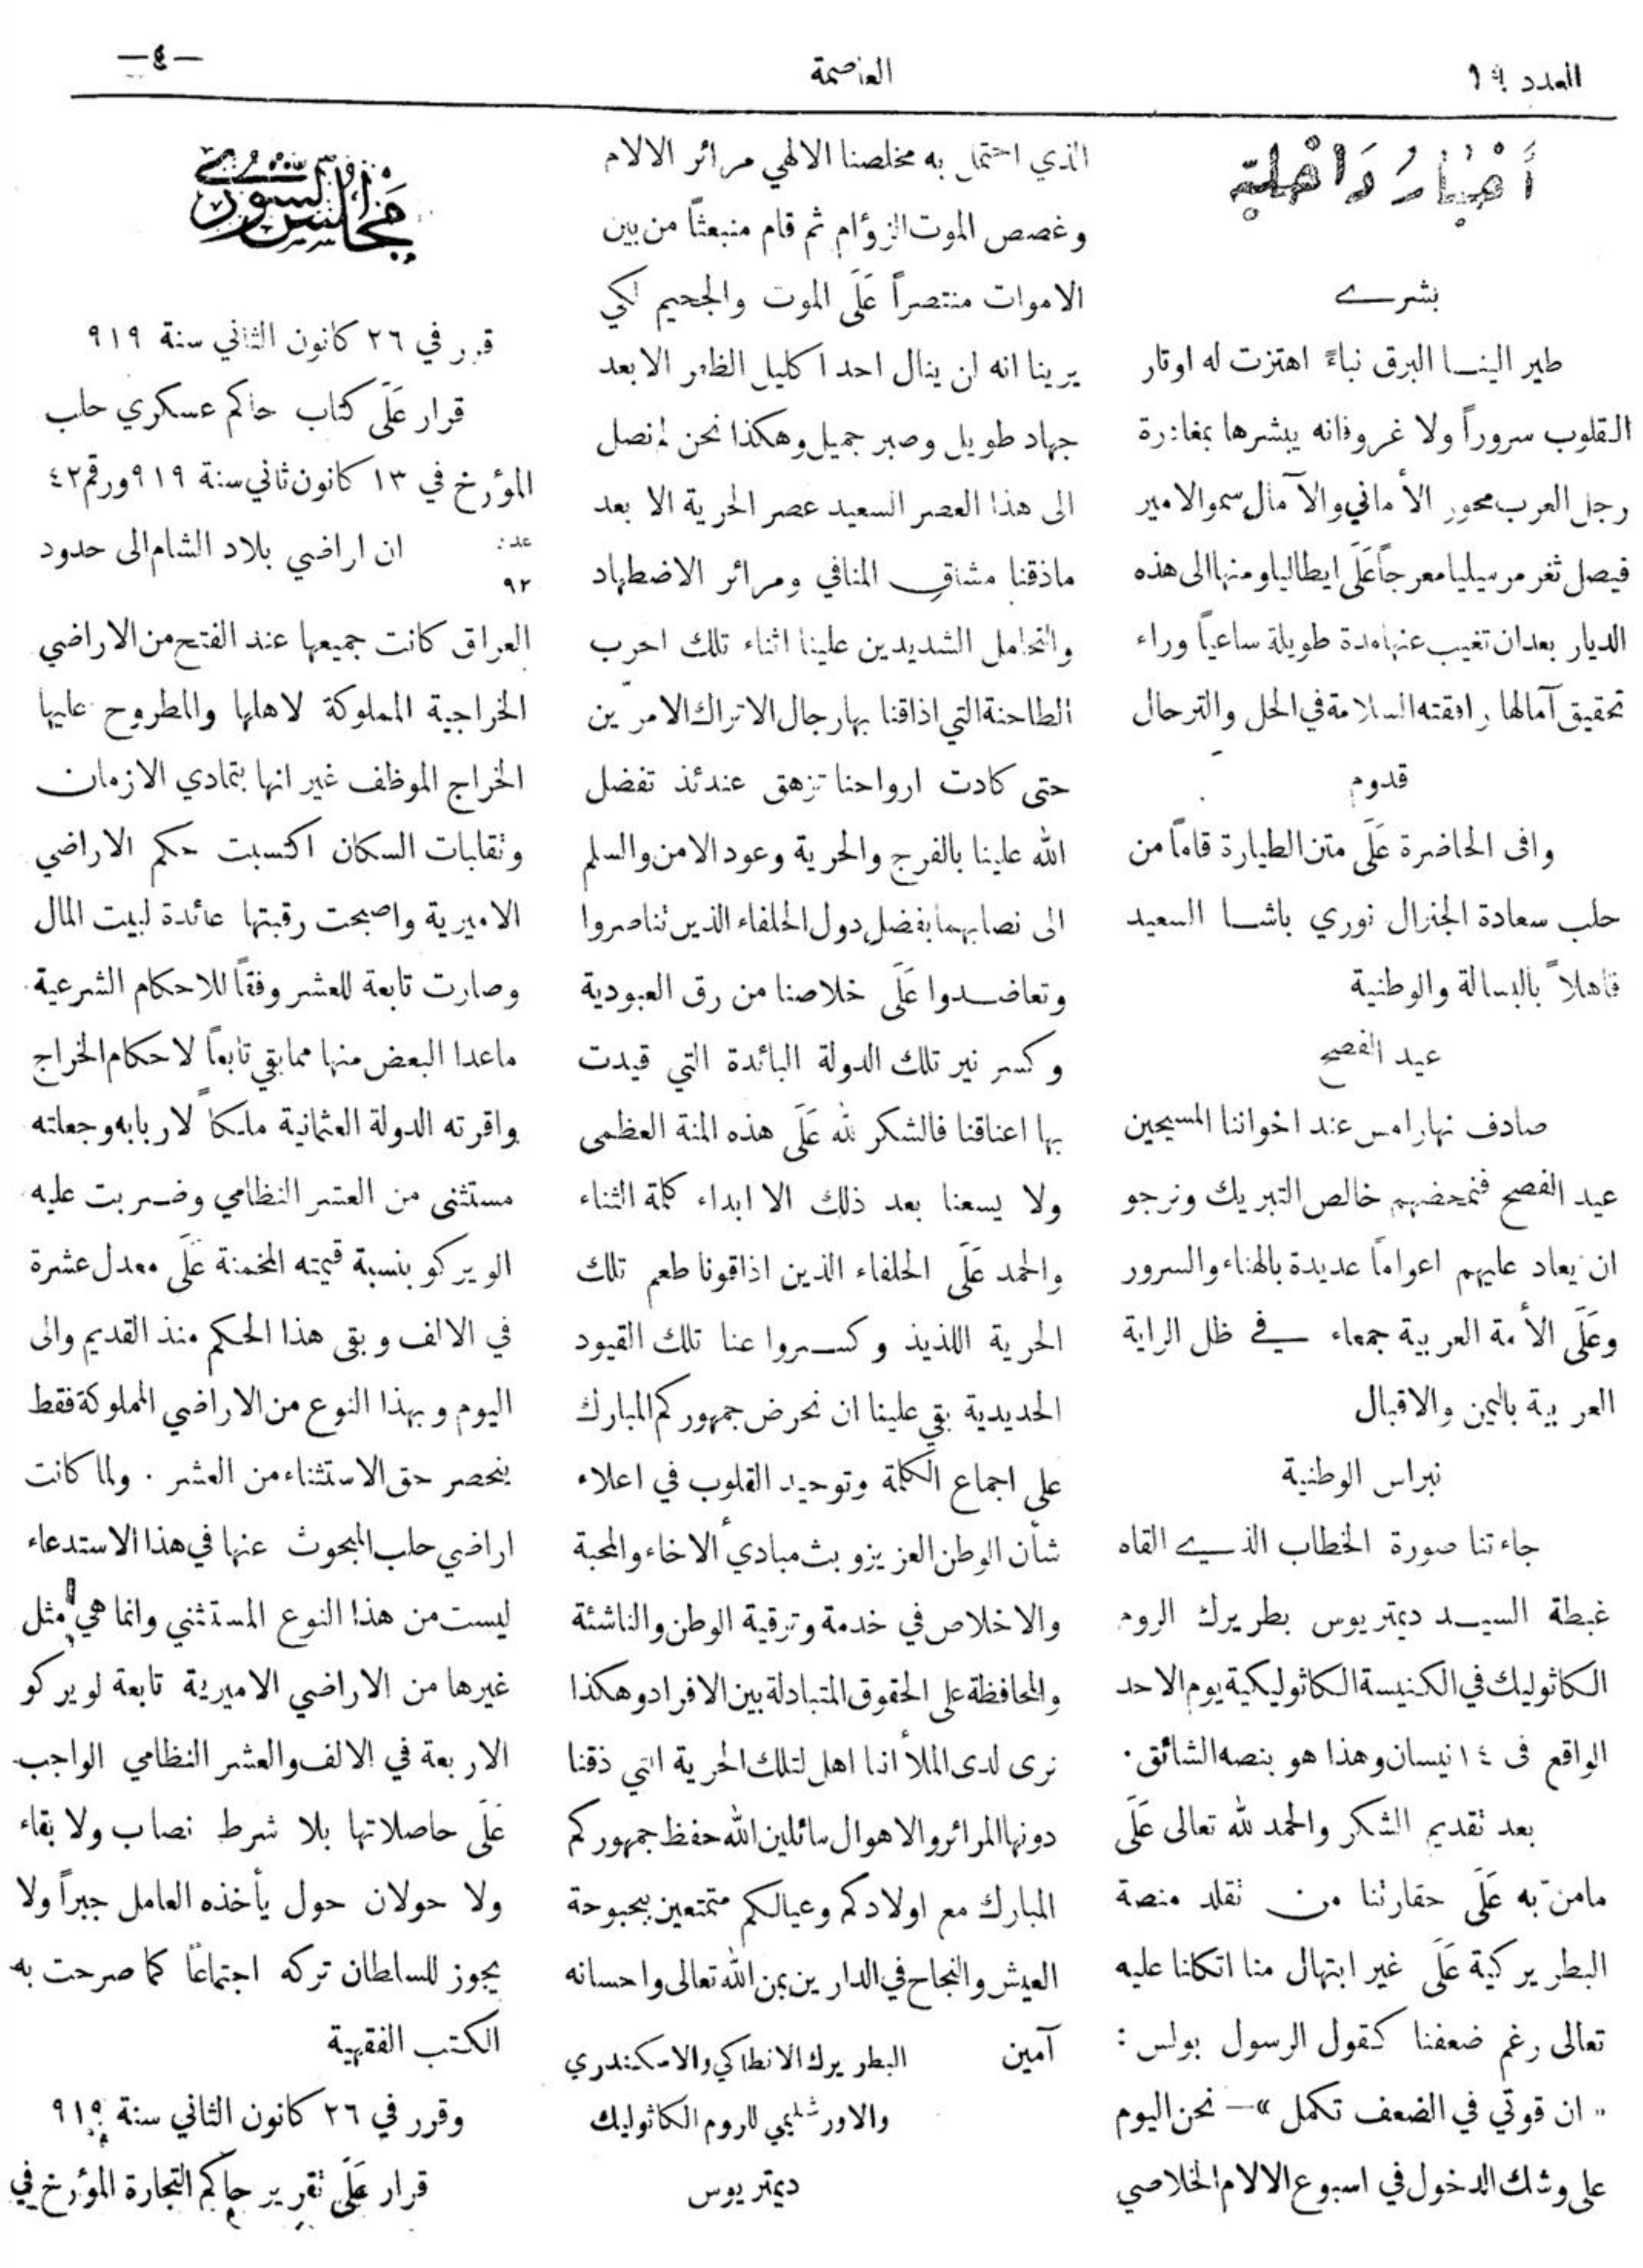 العدد ١٩
العاصمة
—٤—
أَخْبَارُ دَاخْلية
بشرى
طير الينا البرق نباءً اهتزت له اوتار
القلوب سروراً ولا غرو فانه يبشرها بمغادرة
رجل العرب محور الأماني والآمال سمو الامير
فيصل ثغر مرسيليا معرجاً عَلَى ايطاليا ومنها الى هذه
الديار بعد ان تغيب عنها مدة طويلة ساعياً وراء
تحقيق آمالها رافقته السلامة في الحل والترحال
قدوم
وافى الحاضرة عَلَى متن الطيارة قادماً من
حلب سعادة الجنرال نوري باشا السعيد
فاهلاً بالبسالة والوطنية
عيد الفصح
صادف نهار امس عند اخواننا المسيحين
عيد الفصح فنمحضهم خالص التبريك ونرجو
ان يعاد عليهم اعواماً عديدة بالهناء والسرور
وعَلَى الأمة العربية جمعاء في ظل الراية
العربية باليمن والاقبال
نبراس الوطنية
جاءتنا صورة الخطاب الذي القاه
غبطة السيد ديمتريوس بطريرك الروم
الكاثوليك في الكنيسة الكاثوليكية يوم الاحد
الواقع فى ١٤ نيسان وهذا هو بنصه الشائق .
بعد تقديم الشكر والحمد لله تعالى عَلَى
مامنّ به عَلَى حقارتنا من تقلد منصة
البطريركية عَلَى غير ابتهال منا اتكانا عليه
تعالى رغم ضعفنا كقول الرسول بولس :
« ان قوتي في الضعف تكمل »— نحن اليوم
على وشك الدخول في اسبوع الالام الخلاصي
الذي احتمل به مخلصنا الالهي مرائر الالام
وغصص الموت الزؤام ثم قام منبعثاً من بين
الاموات منتصراً عَلَى الموت والجحيم لكي
يرينا انه لن ينال احد اكليل الظفر الا بعد
جهاد طويل وصبر جميل وهكذا نحن لم نصل
الى هذا العصر السعيد عصر الحرية الا بعد
ماذقنا مشاق المنافي ومرائر الاضطهاد
والتحامل الشديدين علينا اثناء تلك الحرب
الطاحنة التي اذاقنا بها رجال الاتراك الامرّين
حتى كادت ارواحنا تزهق عندئذ تفضل
الله علينا بالفرج والحرية وعود الامن والسلم
الى نصابهما بفضل دول الحلفاء الذين تناصروا
وتعاضدوا عَلَى خلاصنا من رق العبودية
وكسر نير تلك الدولة البائدة التي قيدت
بها اعناقنا فالشكر لله عَلَى هذه المنة العظمى
ولا يسعنا بعد ذلك الا ابداء كلمة الثناء
والحمد عَلَى الحلفاء الذين اذاقونا طعم تلك
الحرية اللذيذ وكسروا عنا تلك القيود
الحديدية بقي علينا ان نحرض جمهوركم المبارك
على اجماع الكلمة وتوحيد القلوب في اعلاء
شأن الوطن العزيز وبث مبادي ألاخاء والمحبة
والاخلاص في خدمة وترقية الوطن والناشئة
والمحافظة على الحقوق المتبادلة بين الافراد وهكذا
نرى لدى الملأ اننا اهل لتلك الحرية التي ذقنا
دونها المرائر والاهوال سائلين الله حفظ جمهوركم
المبارك مع اولادكم وعيالكم متمتعين ببحبوحة
العيش والنجاح في الدارين بمن الله تعالى واحسانه
آمين البطريرك الانطاكي والاسكندري
والاورشليمي للروم الكاثوليك
ديمتريوس
مَجْلِسُ الشُّورَى
قرر في ٢٦ كانون الثاني سنة ٩١٩
قرار عَلَى كتاب حاكم عسكري حلب
المؤرخ في ١٣ كانون ثاني سنة ٩١٩ ورقم ٤٢
عدد ٩٢ ان اراضي بلاد الشام الى حدود
العراق كانت جميعها عند الفتح من الاراضي
الخراجية المملوكة لاهلها والمطروح عليها
الخراج الموظف غير انها بتمادي الازمان
وتقلبات السكان اكتسبت حكم الاراضي
الاميرية واصبحت رقبتها عائدة لبيت المال
وصارت تابعة للعشر وفقاً للاحكام الشرعية
ماعدا البعض منها مما بقي تابعاً لاحكام الخراج
واقرته الدولة العثمانية ملكاً لاربابه وجعلته
مستثنى من العشر النظامي وضربت عليه
الويركو بنسبة قيمته المخمنة عَلَى معدل عشرة
في الالف وبقى هذا الحكم منذ القديم والى
اليوم وبهذا النوع من الاراضي المملوكة فقط
ينحصر حق الاستثناء من العشر . ولما كانت
اراضي حلب المبحوث عنها في هذا الاستدعاء
ليست من هذا النوع المستثني وانما هي مثل
غيرها من الاراضي الاميرية تابعة لويركو
الاربعة في الالف والعشر النظامي الواجب
عَلَى حاصلاتها بلا شرط نصاب ولا بقاء
ولا حولان حول يأخذه العامل جبراً ولا
يجوز للسلطان تركه اجتماعاً كما صرحت به
الكتب الفقهية
وقرر في ٢٦ كانون الثاني سنة ٩١٩
قرار عَلَى تقرير حاكم التجارة المؤرخ في